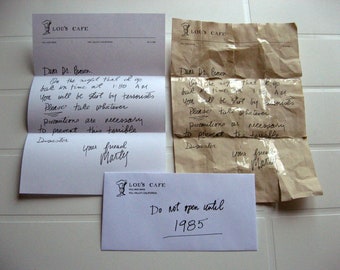 LOU'S CAFE
Dear Dr. Brown
On the night that I go
back in time, at 1:30 AM
you will be shot by terrorists
Please take whatever
precautions are necessary
to prevent this terrible
Disaster
your friend
Marty
LOU'S CAFE
Dear Dr. Brown
On the night that I go
back in time, at 1:30 AM
you will be shot by terrorists
Please take whatever
precautions are necessary
to prevent this terrible
Disaster
your friend
Marty
LOU'S CAFE
Do not open until
1985